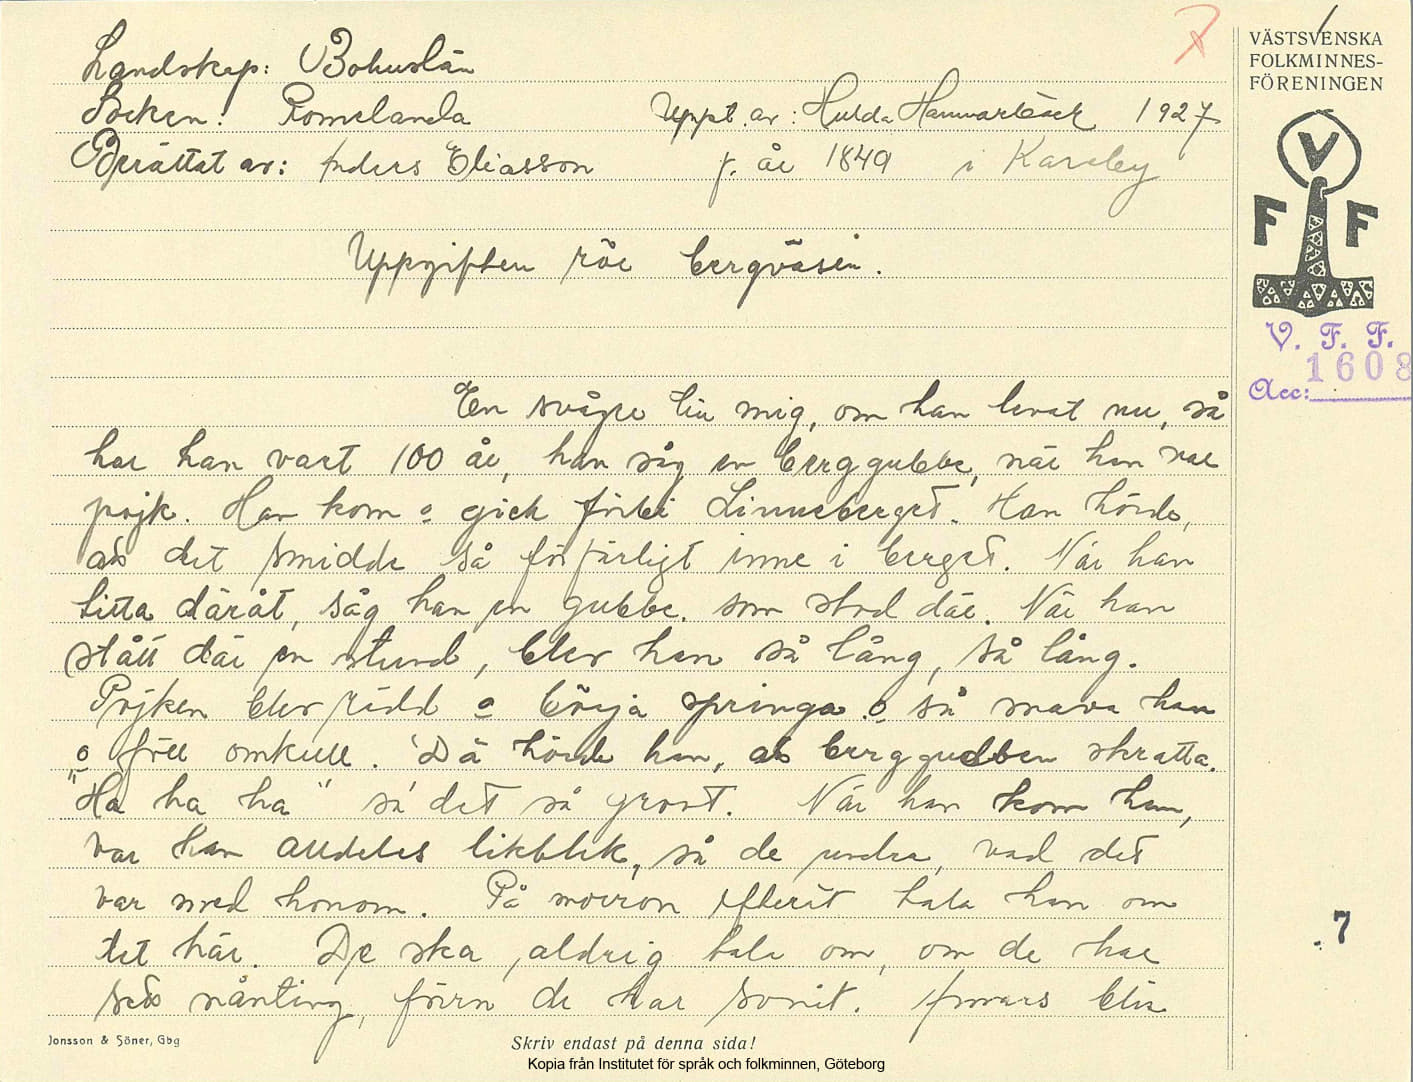 Landskap: Bohuslän
Socken: Romelanda
Uppt. av: Hulda Hammarbäck 1927
Berättat av: Anders Eliasson f. år 1849 i Kareby
Uppgiften rör bergväsen.
En svågre till mig, om han levat nu, så
har han vart 100 år, han såg en berggubbe, när han var
pojk. Han kom o gick förbi Linneberget. Han hörde,
att det smidde så förfärligt inne i berget. När han
titta däråt, såg han en gubbe som stod där. När han
stått där en stund, blev han så lång, så lång.
Pojken blev rädd o börja springa o så snava han
o föll omkull. Då hörde han, att berggubben skratta.
"Ha ha ha" sa det så grovt. När han kom hem,
var han alldeles likblek, så de undra, vad det
var med honom. På morron efteråt tala han om
det här. De ska aldrig tala om, om de har
sett nånting, förrn de har sovit. Annars blir
Jonsson & Söner, Gbg
Skriv endast på denna sida!
Kopia från Institutet för språk och folkminnen, Göteborg
VÄSTSVENSKA
FOLKMINNES-
FÖRENINGEN
V
F F
V. F. F.
1608
Acc:
7